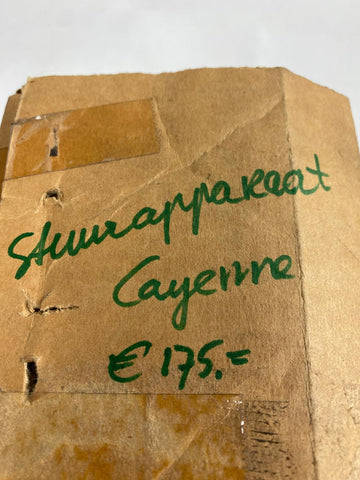 Stuurapparaat
Cayenne
€ 175.=